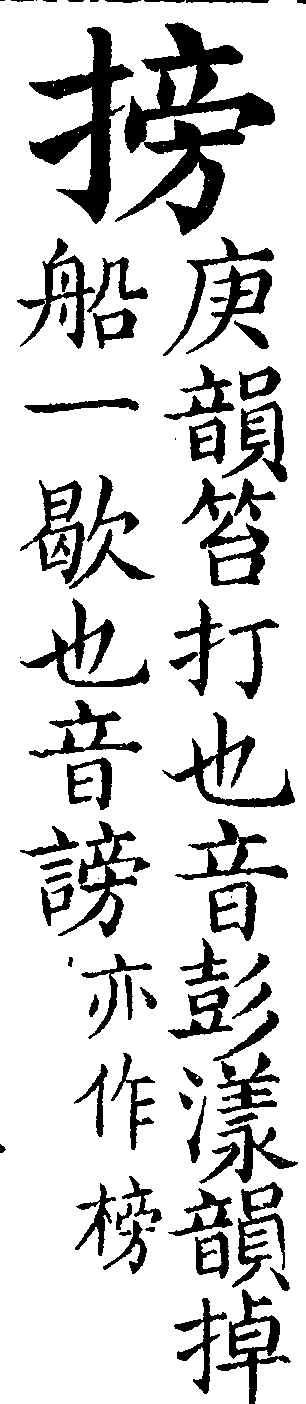 搒
庚韻笞打也音彭漾韻掉
船一歇也音謗亦作榜